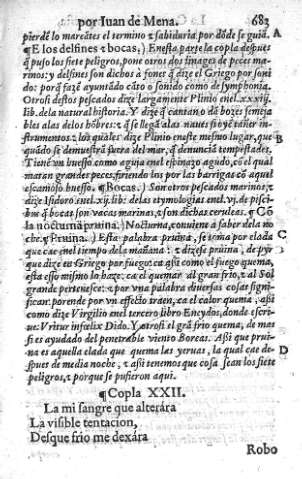 por Iuan de Mena. 683
pierdē lo mareātes el termino τ sabiduria por dōde se guiā.
¶E los delfines τ bocas.) Enesta parte la copla despues
q̄ puso los siete peligros, pone otros dos linages de peces ma-
rinos: y delfines son dichos a fonen q̄ dize el Griego por soni
do: porq̄ fazē ayuntādo cāto o sonido como de symphonia.
Otrosi destos pescados dize largamente Plinio enel.xxxij.
lib.dela natural historia. Y dize q̄ cantan o dā bozes semeja
bles alas delos hōbres: τ q̄ se llegā alas naues si oyē tañer in-
strumentos: τ los quales dize Plinio eneste mesmo lugar, que
quādo se demuestrā fuera del mar, q̄ denunciā tempestades,
Tienē vn huesso como aguja enel espinazo agudo, cō el qual
matan grandes peces, firiendo los por las barrigas cō aquel
escamoso huesso. ¶Bocas.) Son otros pescados marinos, τ
dize Isidoro enel.xij.lib. delas etymologias enel.vj.de pisci-
bus q̄ bocas son vacas marinas, τ son dichas ceruleas. ¶Cō
la nocturna pruina.) Nocturna, conuiene a saber dela no
che. ¶Pruina.) Esta palabra pruina, se toma por elada
que cae enel tiempo dela mañana: τ dizese pruina, de pyr
que dize en Griego por fuego: ca assi como el fuego quema,
esta esso mismo lo haze: ca el quemar al gran frio, τ al Sol
grande pertenesce: τ por vna palabra diuersas cosas signi-
fican: porende por vn effecto traen, ca el calor quema, assi
como dize Virgilio enel tercero libro Eneydos, donde escri-
ue: Vritur infelix Dido. Y otrosi el grā frio quema, de mas
si es ayudado del penetrable viento Boreas. Assi que prui-
na es aquella elada que quema las yeruas, la qual cae des-
pues de media noche, τ assi tenemos que cosa sean los siete
peligros, τ porque se pusieron aqui.
¶Copla XXII.
La mi sangre que alterára
La visible tentacion,
Desque frio me dexára
Robo
A
B
C
D